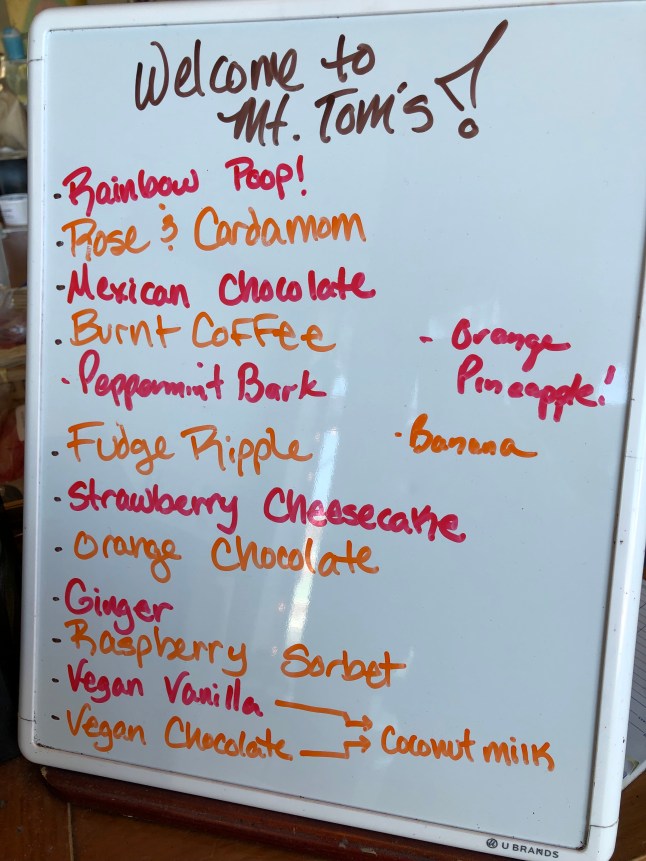 Welcome to
Mt. Tom's!
- Rainbow Poop!
- Rose & Cardamom
- Mexican Chocolate
- Burnt Coffee
- Peppermint Bark
- Fudge Ripple
- Strawberry Cheesecake
- Orange Chocolate
- Ginger
- Raspberry Sorbet
- Vegan Vanilla
- Vegan Chocolate
Coconut milk
- Orange
Pineapple!
- Banana
U BRANDS